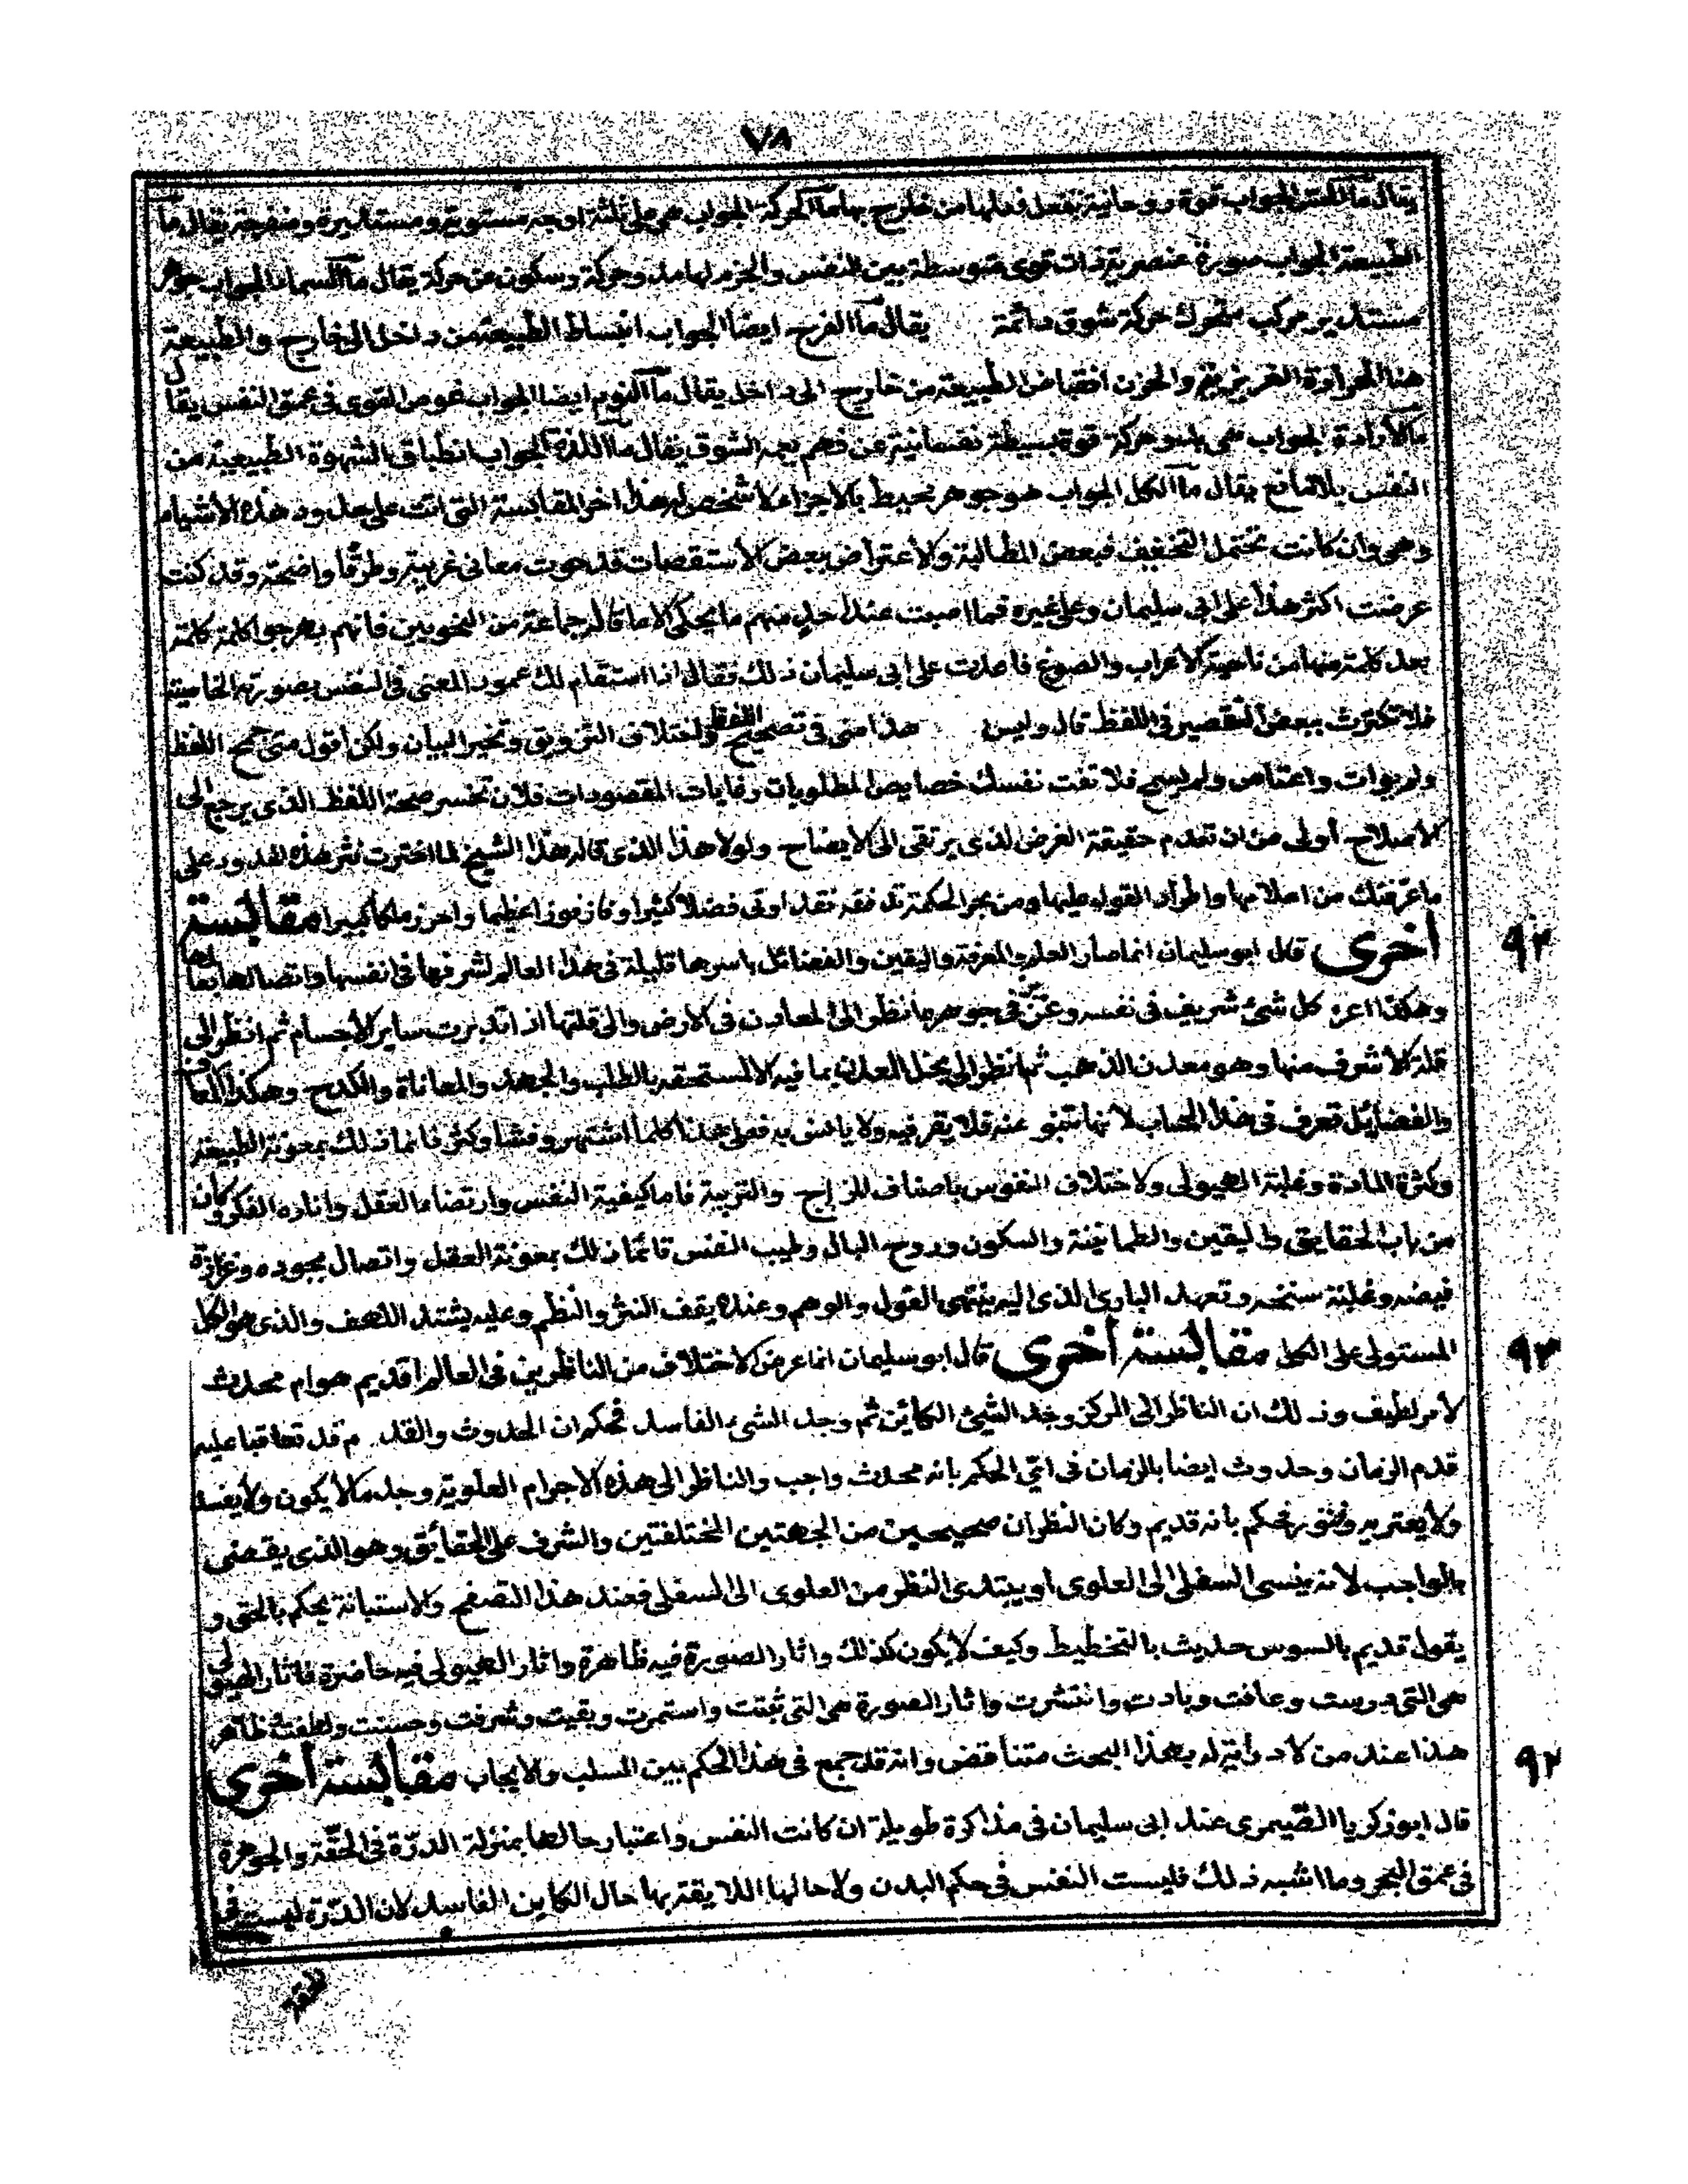 ٧٨
يقال ما الجواب قوة روحانية تفعل فعلها من خارج يقال ما الحركة الجواب هي على ثلثة اوجه مستوية ومستديرة ومنفرجة يقال ما
الطبيعة الجواب صورة عنصرية ذات قوى متوسطة بين النفس والجرم لها مبدء حركة وسكون عن حركة يقال ما السماء الجواب جوهر
مستدير مركب متحرك حركة شوق دائمة يقال ما الفرح ايضا الجواب انبساط الطبيعة من داخل الى خارج والطبيعة
هنا الحرارة الغريزية والحزن انقباض الطبيعة من خارج الى داخل يقال ما النوم ايضا الجواب غوص القوى في عمق النفس يقال
ما الأرادة الجواب هي بدو حركة قوة بسيطة نفسانية عن فهم الشوق يقال ما اللذة الجواب انطباق الشهوة الطبيعية من
النفس بلا مانع يقال ما الكل الجواب هو جوهر محيط بالاجزاء لا شخص له هذا اخر المقابسة التي اتت على حدود هذه الأشياء
وهي وان كانت تحتمل التخفيف فبعض المطالبة والأعتراض ببعض الأستقصات قد حوت معاني غريبة وطرقًا واضحة وقد كنت
عرضت اكثر هذا على ابي سليمان وعلى غيره فما اصبت عند احد منهم ما يحكى الا ما قاله جماعة من النحويين فانهم بهرجوا كلمة كلمة
بعد كلمة منها من ناحية الأعراب والصوغ فاعدت على ابي سليمان ذلك فقال اذا استقام لك عمود المعنى في النفس بصورته الخاصية
فلا تكترث ببعض التقصير في اللفظ قال وليس هذا مني في تصحيح اللفظ واختلاف التزويق وتخير البيان ولكن أقول متى جمح اللفظ
ولم يوات واعتاص ولم يسمح فلا تفت نفسك خصايص المطلوبات وغايات المقصودات فلان تخسر صحة اللفظ الذي يرجع الى
الأصلاح أولى من ان تعدم حقيقة الغرض الذي يرتقى الى الأيضاح ولولا هذا الذي قاله هذا الشيخ لما اخترت نثر هذه الحدود على
ما عرفتك من اعلامها واطراد القول عليها ومن بحر الحكمة تدفقه فقد اوتى فضلا كثيرا وفاز فوزا عظيما واحرز ملكا كبيرا مقابسة
أخرى قال ابو سليمان انما صار العلم والمعرفة واليقين والفضائل باسرها قليلة في هذا العالم لشرفها في انفسها واتصالها بعالمها ٩٢
وهكذا اعز كل شئ شريف في نفسه وعزّ في جوهره انظر الى المعادن في الارض والى قلتها اذا تدبرت ساير الأجسام ثم انظر الى
قلة الأشرف منها وهو معدن الذهب ثم انظر الى بخل المعدن بما فيه الا لمستحقه بالطلب والجهد والمعاناة والكدح وهكذا المعارف
والفضائل تعرف في هذا الحساب لانها تنبو عنه فلا يقر فيه ولا يانس به فعلى هذا كلما اشتهر وفشا وكثر فانما ذلك بمعونة الطبيعة
وكثرة المادة وغلبة الهيولى ولاختلاف النفوس باصناف المزاج والتربية فاما كيفية النفس وارتضاء العقل واناره الفكر وكان
من باب الحقايق واليقين والطمانينة والسكون وروح البال وطيب النفس فانما ذلك بمعونة العقل واتصال بجوده وغزارة
فيضه وغلبة سنخه وتعهد البارئ الذي اليه ينتهى القول والوهم وعنده يقف النثر والنظم وعليه يشتد اللهف والذي هو الكل
المستولى على الكل مقابسة أخرى قال ابو سليمان انما عرض الاختلاف من الناظرين في العالم اقديم هو ام محدث ٩٣
لأمر لطيف وذلك ان الناظر الى المركز وجد الشئ الكائن ثم وجد الشئ الفاسد فحكم ان الحدوث والقدم قد تعاقبا عليه
قدم الزمان وحدوث ايضا بالزمان في اتي الحكم بانه محدث واجب والناظر الى هذه الاجرام العلوية وجد ما لا يكون ولا يفسد
ولا يعتريه وفتور فحكم بانه قديم وكان النظران صحيحين من الجهتين المختلفتين والشرف على الحقائق وهو الذي يقضى
بالواجب لانه ينسى السفلى الى العلوى او يبتدئ النظر من العلوى الى السفلى فعند هذا التصفح والأستبانة يحكم بالحق و
يقول قديم بالسوس حديث بالتخطيط وكيف لا يكون كذلك واثار الصورة فيه ظاهرة واثار الهيولى فيه حاضرة فاثار الهيولى
هي التي درست وعافت وبادت وانتشرت واثار الصورة هي التي ثبتت واستمرت وبقيت وشرفت وحسنت ولطفت ظاهر
هذا عند من لا دراية له بهذا البحث متناقض وانه قد جمع في هذا الحكم بين السلب والايجاب مقابسة أخرى ٩٤
قال ابو زكريا الصّيمرى عند ابي سليمان في مذاكرة طويلة ان كانت النفس واعتبار حالها بمنزلة الدرّة في الحقّة والجوهرة
في عمق البحر وما اشبه ذلك فليست النفس في حكم البدن ولا حالها اللايقة بها حال الكاين الفاسد لان الدرّة ليست في
الحقة